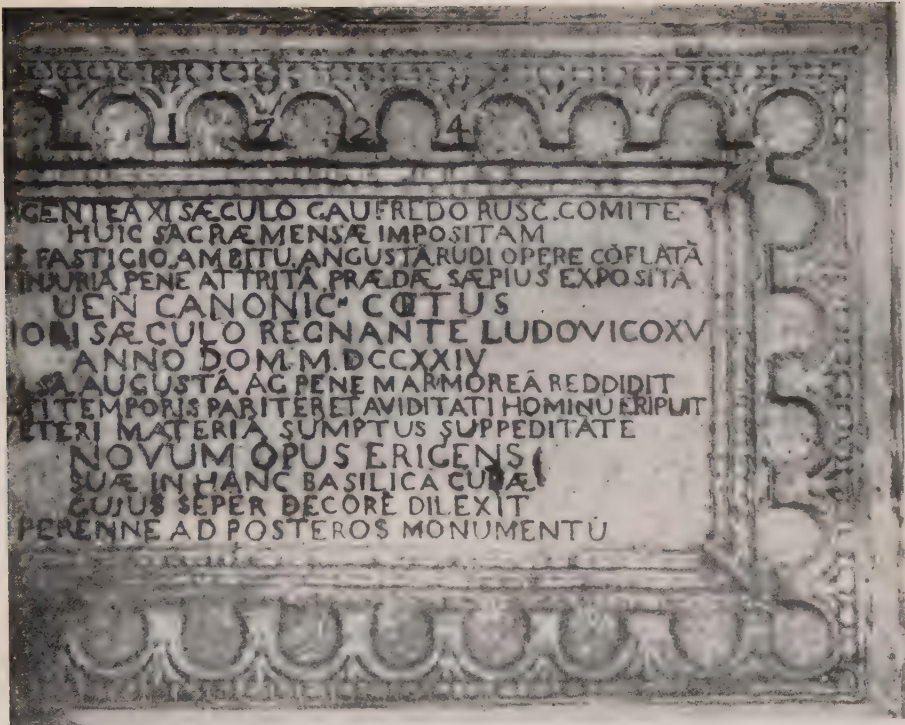 1724
GENTEA XI SÆCULO GAUFREDO RUSC. COMITE
HUIC SACRÆ MENSÆ IMPOSITAM
FASTIGIO, AMBITU, ANGUSTĀ RUDI OPERE CŌFLATĀ
INJURIA PENE ATTRITĀ, PRÆDÆ SÆPIUS EXPOSITĀ
UEN CANONIC CŒTUS
ORI SÆCULO REGNANTE LUDOVICO XV
ANNO DOM. M. DCCXXIV
SA AUGUSTĀ, AC PENE MARMOREĀ REDDIDIT
TI TEMPORIS PARITER ET AVIDITATI HOMINŪ ERIPUIT
TERI MATERIĀ SUMPTUS SUPPEDITATE
NOVUM OPUS ERIGENS
SUÆ IN HANC BASILICĀ CURÆ
CUJUS SĒPER DECORĒ DILEXIT
PERENNE AD POSTEROS MONUMENTŪ